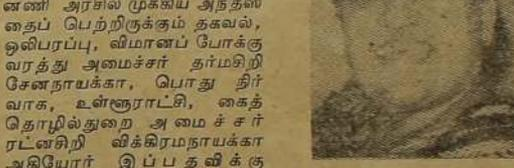 னணி அரசில் முக்கிய அந்தஸ்
தைப் பெற்றிருக்கும் தகவல்,
ஒலிபரப்பு, விமானப் போக்கு
வரத்து அமைச்சர் தர்மசிறி
சேனநாயக்கா, பொது நிர்
வாக, உள்ளூராட்சி, கைத்
தொழில்துறை அமைச்சர்
ரட்னசிறி விக்கிரமநாயக்கா
ஆகியோர் இப்பதவிக்கு